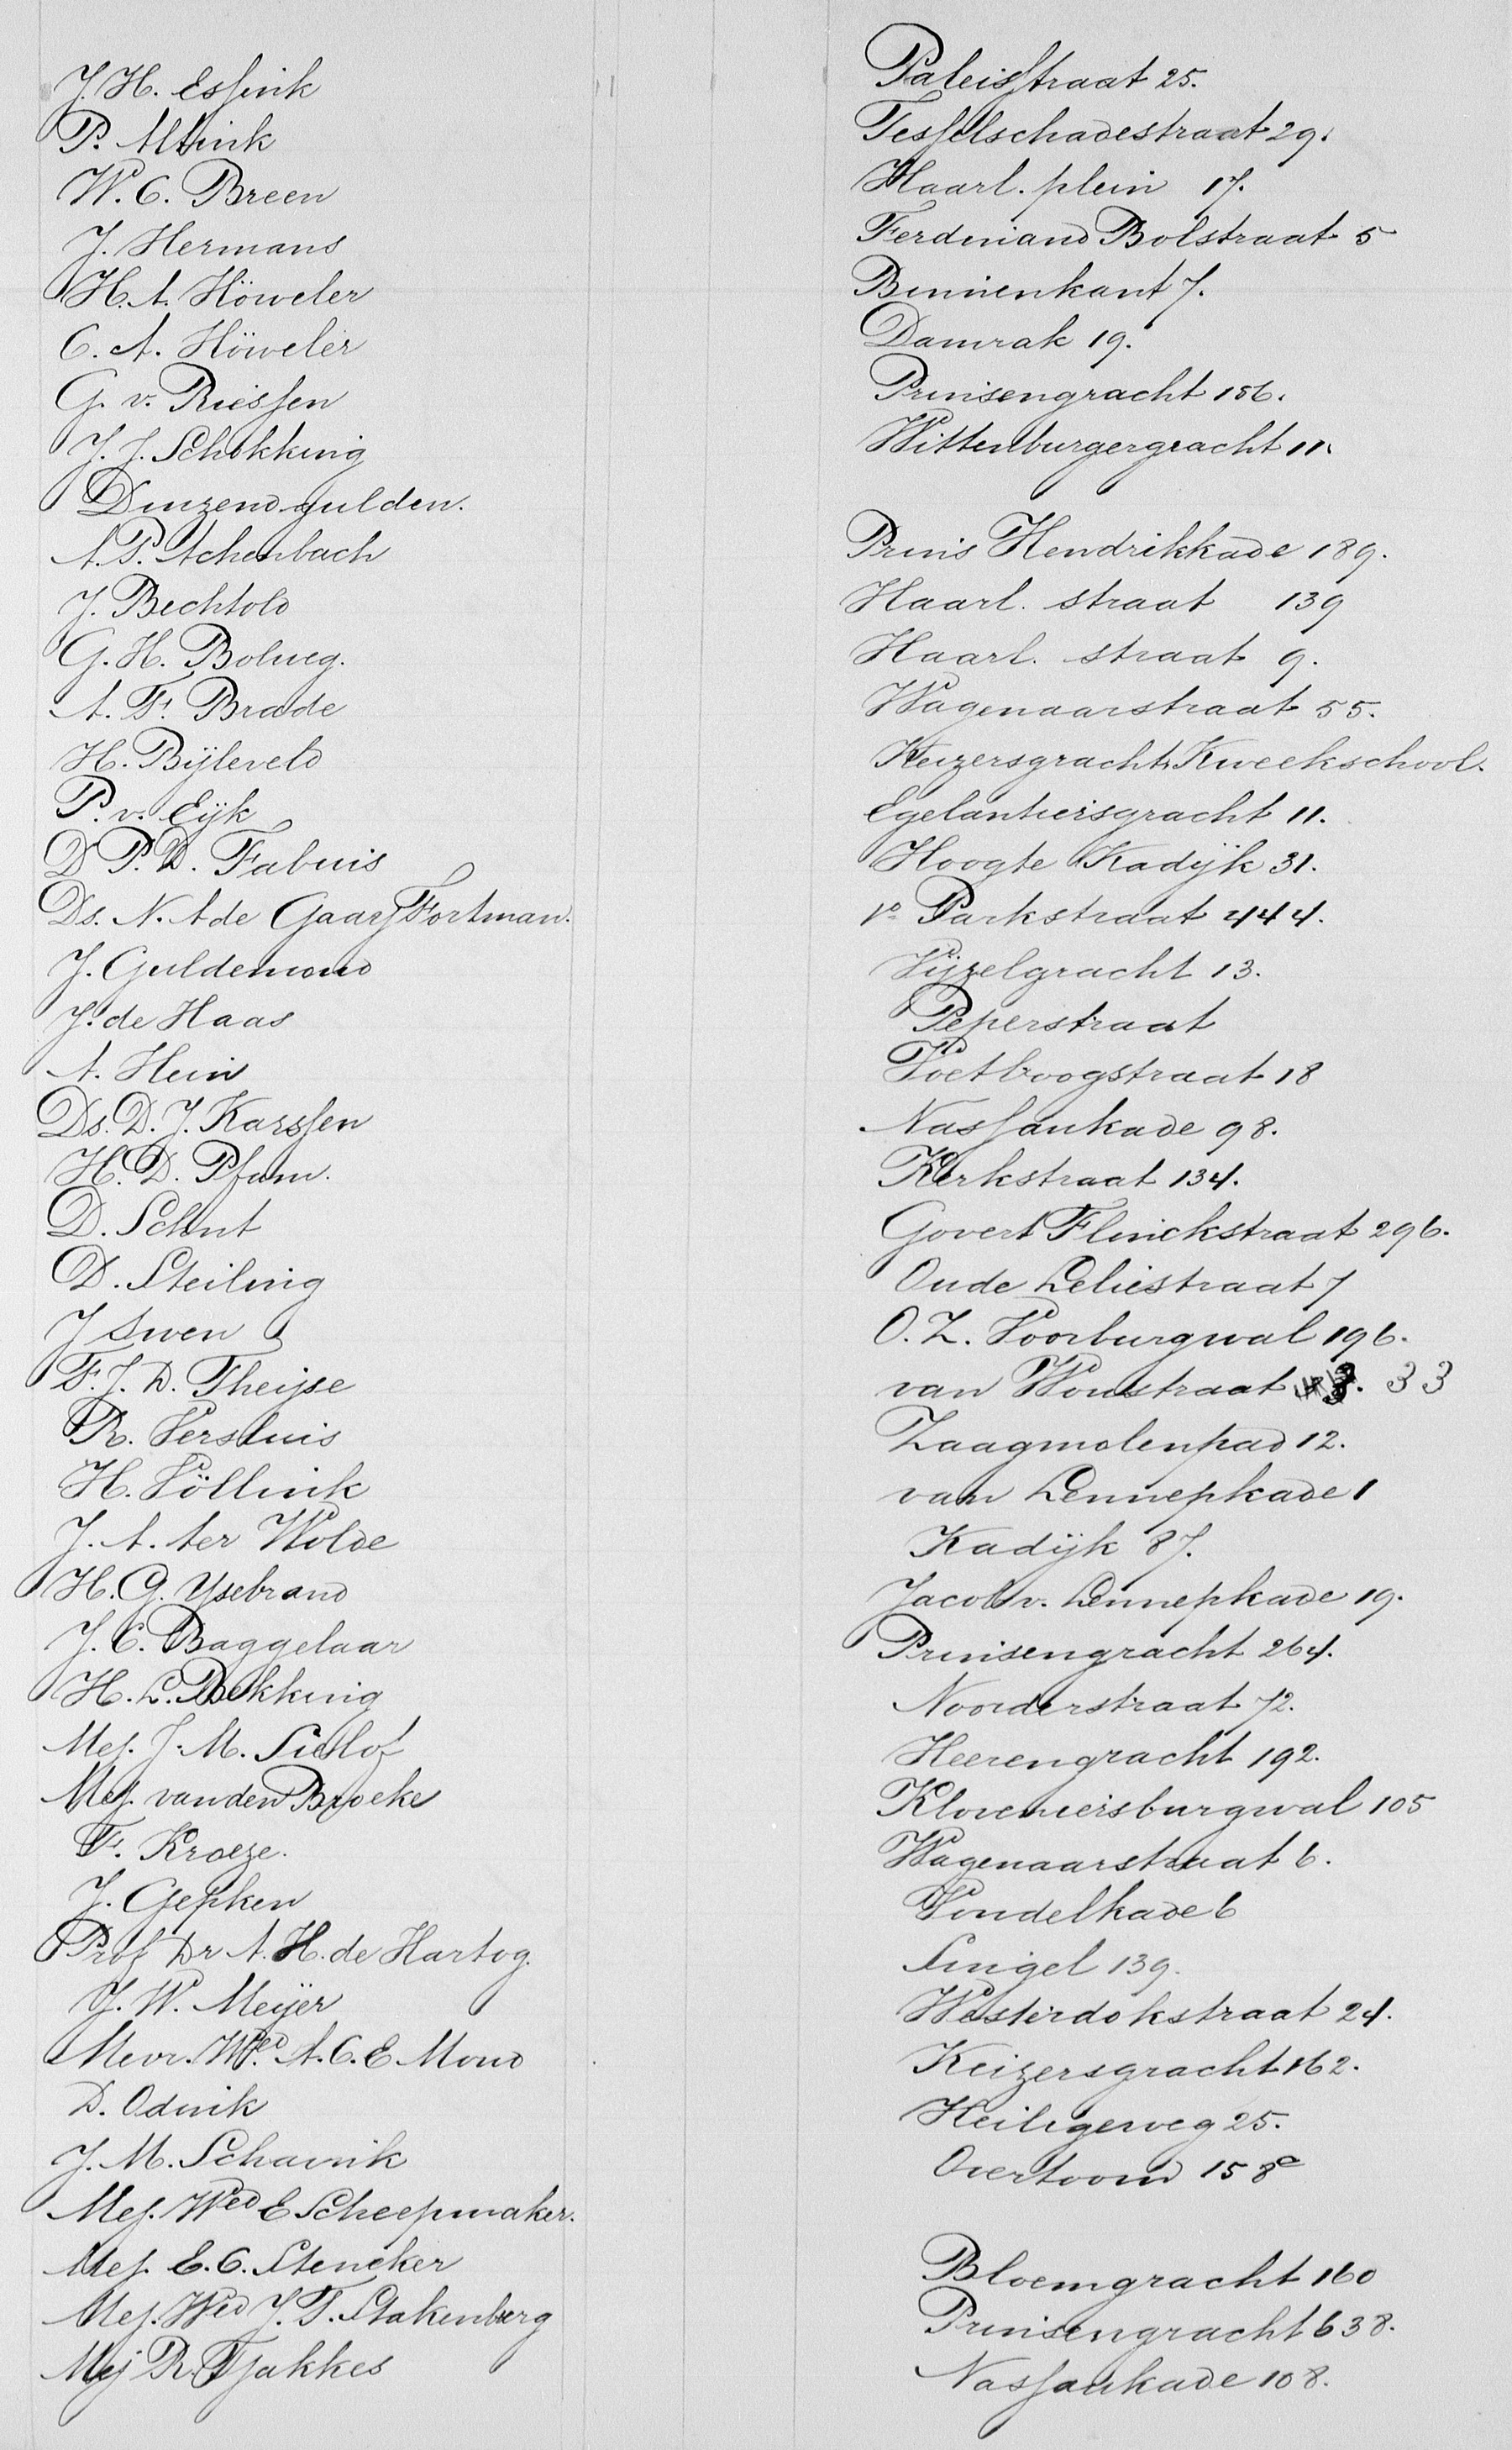 J. H. Essink Paleisstraat 25.
P. Altink Tesselschadestraat 29.
W. C. Breen Haarl. plein 17.
J. Hermans Ferdinand Bolstraat 5
H. A. Höweler Binnenkant 7.
C. A. Höweler Damrak 19.
G. v. Riessen Prinsengracht 156.
J. J. Schokking Wittenburgergracht 11.
Duizend gulden.
A. P. Achenbach Prins Hendrikkade 189.
J. Bechtold Haarl. straat 139
G. H. Bolweg. Haarl. straat 9.
A. F. Brade Wagenaarstraat 55.
H. Bijleveld Keizersgracht, Kweekschool.
P. v. Eijk Egelantiersgracht 11.
D P. D. Fabius Hoogte Kadijk 31.
Ds. N. A de Gaay Fortman. 1e Parkstraat 444.
J. Guldemond Vijzelgracht 13.
J. de Haas Peperstraat
A. Hein Voetboogstraat 18
Ds. D. J. Karssen Nassaukade 98.
H. D. Pfann. Kerkstraat 134.
D. Schut Govert Flinckstraat 296.
D. Steiling Oude Leliestraat 7
J Swen O. Z. Voorburgwal 196.
F. J. D. Theijse van Woustraat 33
R. Versluis Zaagmolenpad 12.
H. Völlink van Lennepkade 1
J. A. ter Wolde Kadijk 87.
H. G. Ysebrand Jacob v. Lennepkade 19.
J. C. Baggelaar Prinsengracht 264.
H. L. Bekking Noorderstraat 72.
Mej. J. M. Heerengracht 192.
Mej. van den Broeke Kloveniersburgwal 105
F. Kroeze. Wagenaarstraat 6.
J. Gepken Vondelkade 6
Prof Dr A. H. de Hartog. Singel 139.
J. W. Meijer Westerdokstraat 24.
Mevr. Wed. A. C. E Mond Keizersgracht 162.
D. Odink Heiligeweg 25.
J. M. Schavrik Overtoom 158a
Mej. Wed E Scheepmaker.
Mej. E. C. Stencker Bloemgracht 160
Mej. Wed J. T. Stakenberg Prinsengracht 638.
Mej R. Tjakkes Nassaukade 108.